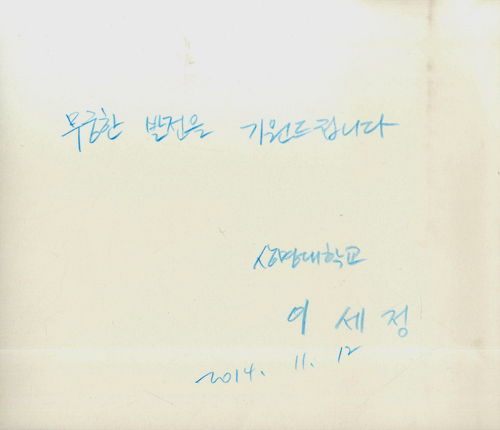 무궁한 발전을 기원드립니다
상명대학교
이 세 정
2014. 11. 12